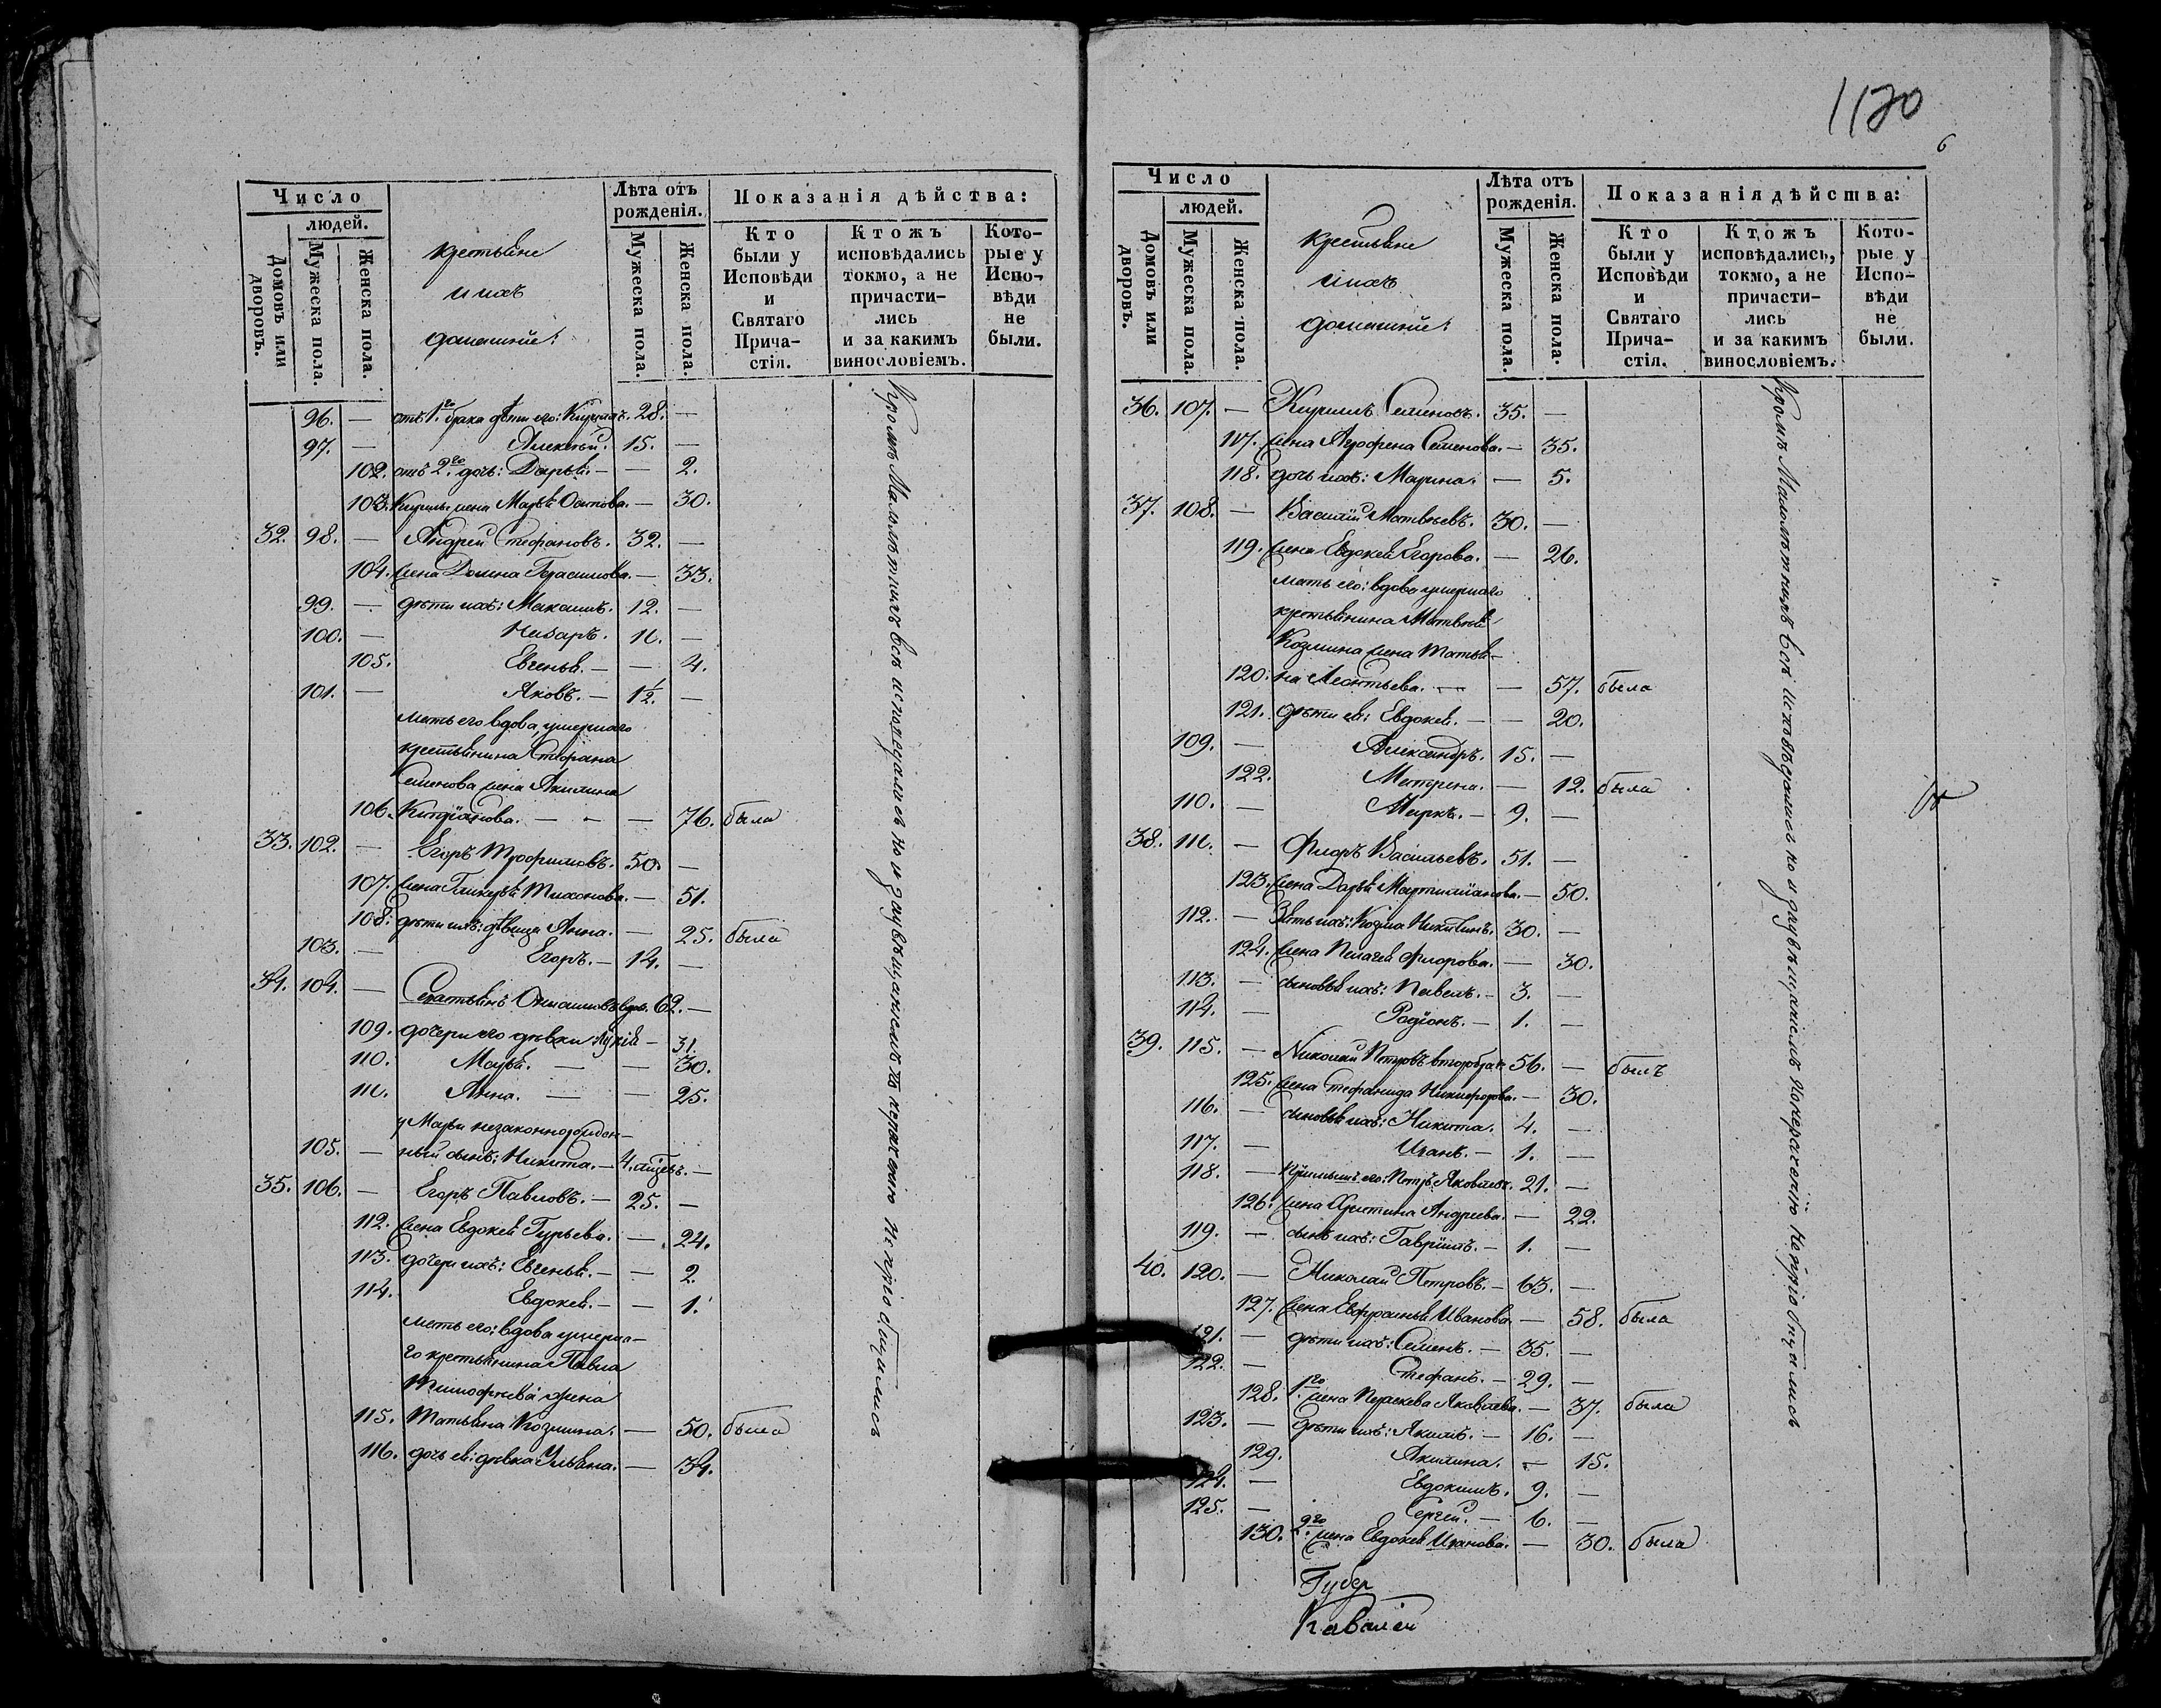 Число
людей.
Домовъ или дворовъ.
Мужеска пола.
Женска пола.
крестьяне
и ихъ
домашніе:
Лѣта отъ рожденія.
Мужеска пола.
Женска пола.
Показанія дѣйства:
Кто были у Исповѣди и Святаго Прича-стія.
Ктожъ исповѣдались токмо, а не причасти-лись и за какимъ винословіемъ.
Кото-рые у Испо-вѣди не были.
96. — отъ 1го брака дѣти его: Кириллъ. 28. —
97. — Алексѣй. 15. —
102. отъ 2го дочь: Дарья. — — 2.
103. Кирилы жена Марья Осипова. — 30.
32. 98. — Андрей Стефановъ. 32. —
104. жена Домна Герасимова. — 33.
99. — дѣти ихъ: Максимъ. 12. —
100. — Назаръ. 11. —
105. Евгенья. — — 4.
101. — Яковъ. — 1½. —
мать его вдова, умершаго
крестьянина Стефана
Семенова жена Акилина
106. — — — 76. была
33. 102. — Егоръ Трофимовъ. 50. —
107. жена Гликерья Тихонова. — 51.
108. дѣти ихъ: дѣвица Анна. — 25. была
103. — Егоръ. — 14. —
34. 104. — Севастьянъ вдов. 62. —
109. дочери его дѣвки: — 31.
110. Марья. — — 30.
111. Анна. — — 25.
у Марьи незаконнорожден-
105. — ный сынъ: Никита. — 4. —
35. 106. — Егоръ Павловъ. — 25. —
112. жена Евдокея Гурьева. — 24.
113. дочери ихъ: Евгенья. — — 2.
114. Евдокея. — — 1.
мать его: вдова умерша-
го крестьянина Павла
Тимофѣева жена
115. Татьяна Козмина. — 50. была
116. дочь ея: дѣвка Ульяна. — 34.
Кромѣ Малолѣтнихъ всѣ исповѣдались но и за увѣщаніемъ по нераченію не пріобщались
1170
6
Число
людей.
Домовъ или дворовъ.
Мужеска пола.
Женска пола.
крестьяне
и ихъ
домашніе:
Лѣта отъ рожденія.
Мужеска пола.
Женска пола.
Показанія дѣйства:
Кто были у Исповѣди и Святаго Прича-стія.
Ктожъ исповѣдались, токмо, а не причасти-лись и за какимъ винословіемъ.
Кото-рые у Испо-вѣди не были.
36. 107. — Кирилъ Семеновъ. 35. —
117. жена Агрофена Семенова. — 35.
118. дочь ихъ: Марина. — 5.
37. 108. — Василій Матвѣевъ. 30. —
119. жена Евдокея Егорова. — 26.
мать его: вдова умершаго
крестьянина Матвѣя
Козмина жена Татья-
120. на Леонтьева. — — 57. была
121. дѣти ея: Евдокея. — — 20.
109. — Александръ. 15. —
122. Матрена. — 12. была
110. — Маркъ. — 9. —
38. 111. — Флоръ Васильевъ. 51. —
123. жена Дарья Мартиміанова. — 50.
112. — Зять ихъ: Козма Никитинъ. 30. —
124. жена Пелагея Флорова. — 30.
113. — сыновья ихъ: Павелъ. — 3. —
114. — Родіонъ. — 1. —
39. 115. — Николай Петровъ второбрач. 56. — былъ
125. жена Стефанида Никифорова. — 30.
116. — сыновья ихъ: Никита. 4. —
117. — Иванъ. — 1. —
118. — его: Петръ Яковлевъ. 21. —
126. жена Христина Андреева. — 22.
119. — сынъ ихъ: Гаврiилъ. — 1. —
40. 120. — Николай Петровъ. — 63. —
127. жена Евфросинья Иванова — 58. была
121. — дѣти ихъ: Семенъ. — 35. —
122. — Стефанъ. — 29. —
128. 1го жена Параскева Яковлева. — 37. была
123. — дѣти ихъ: Акимъ. — 16. —
129. Акилина. — 15.
124. — Евдокимъ. 9. —
125. — Сергей. — 6. —
130. 2го жена Евдокея Иванова. — 30. была
Кромѣ Малолѣтнихъ всѣ исповѣдались но и за увѣщаніемъ по нераченію не пріобщались